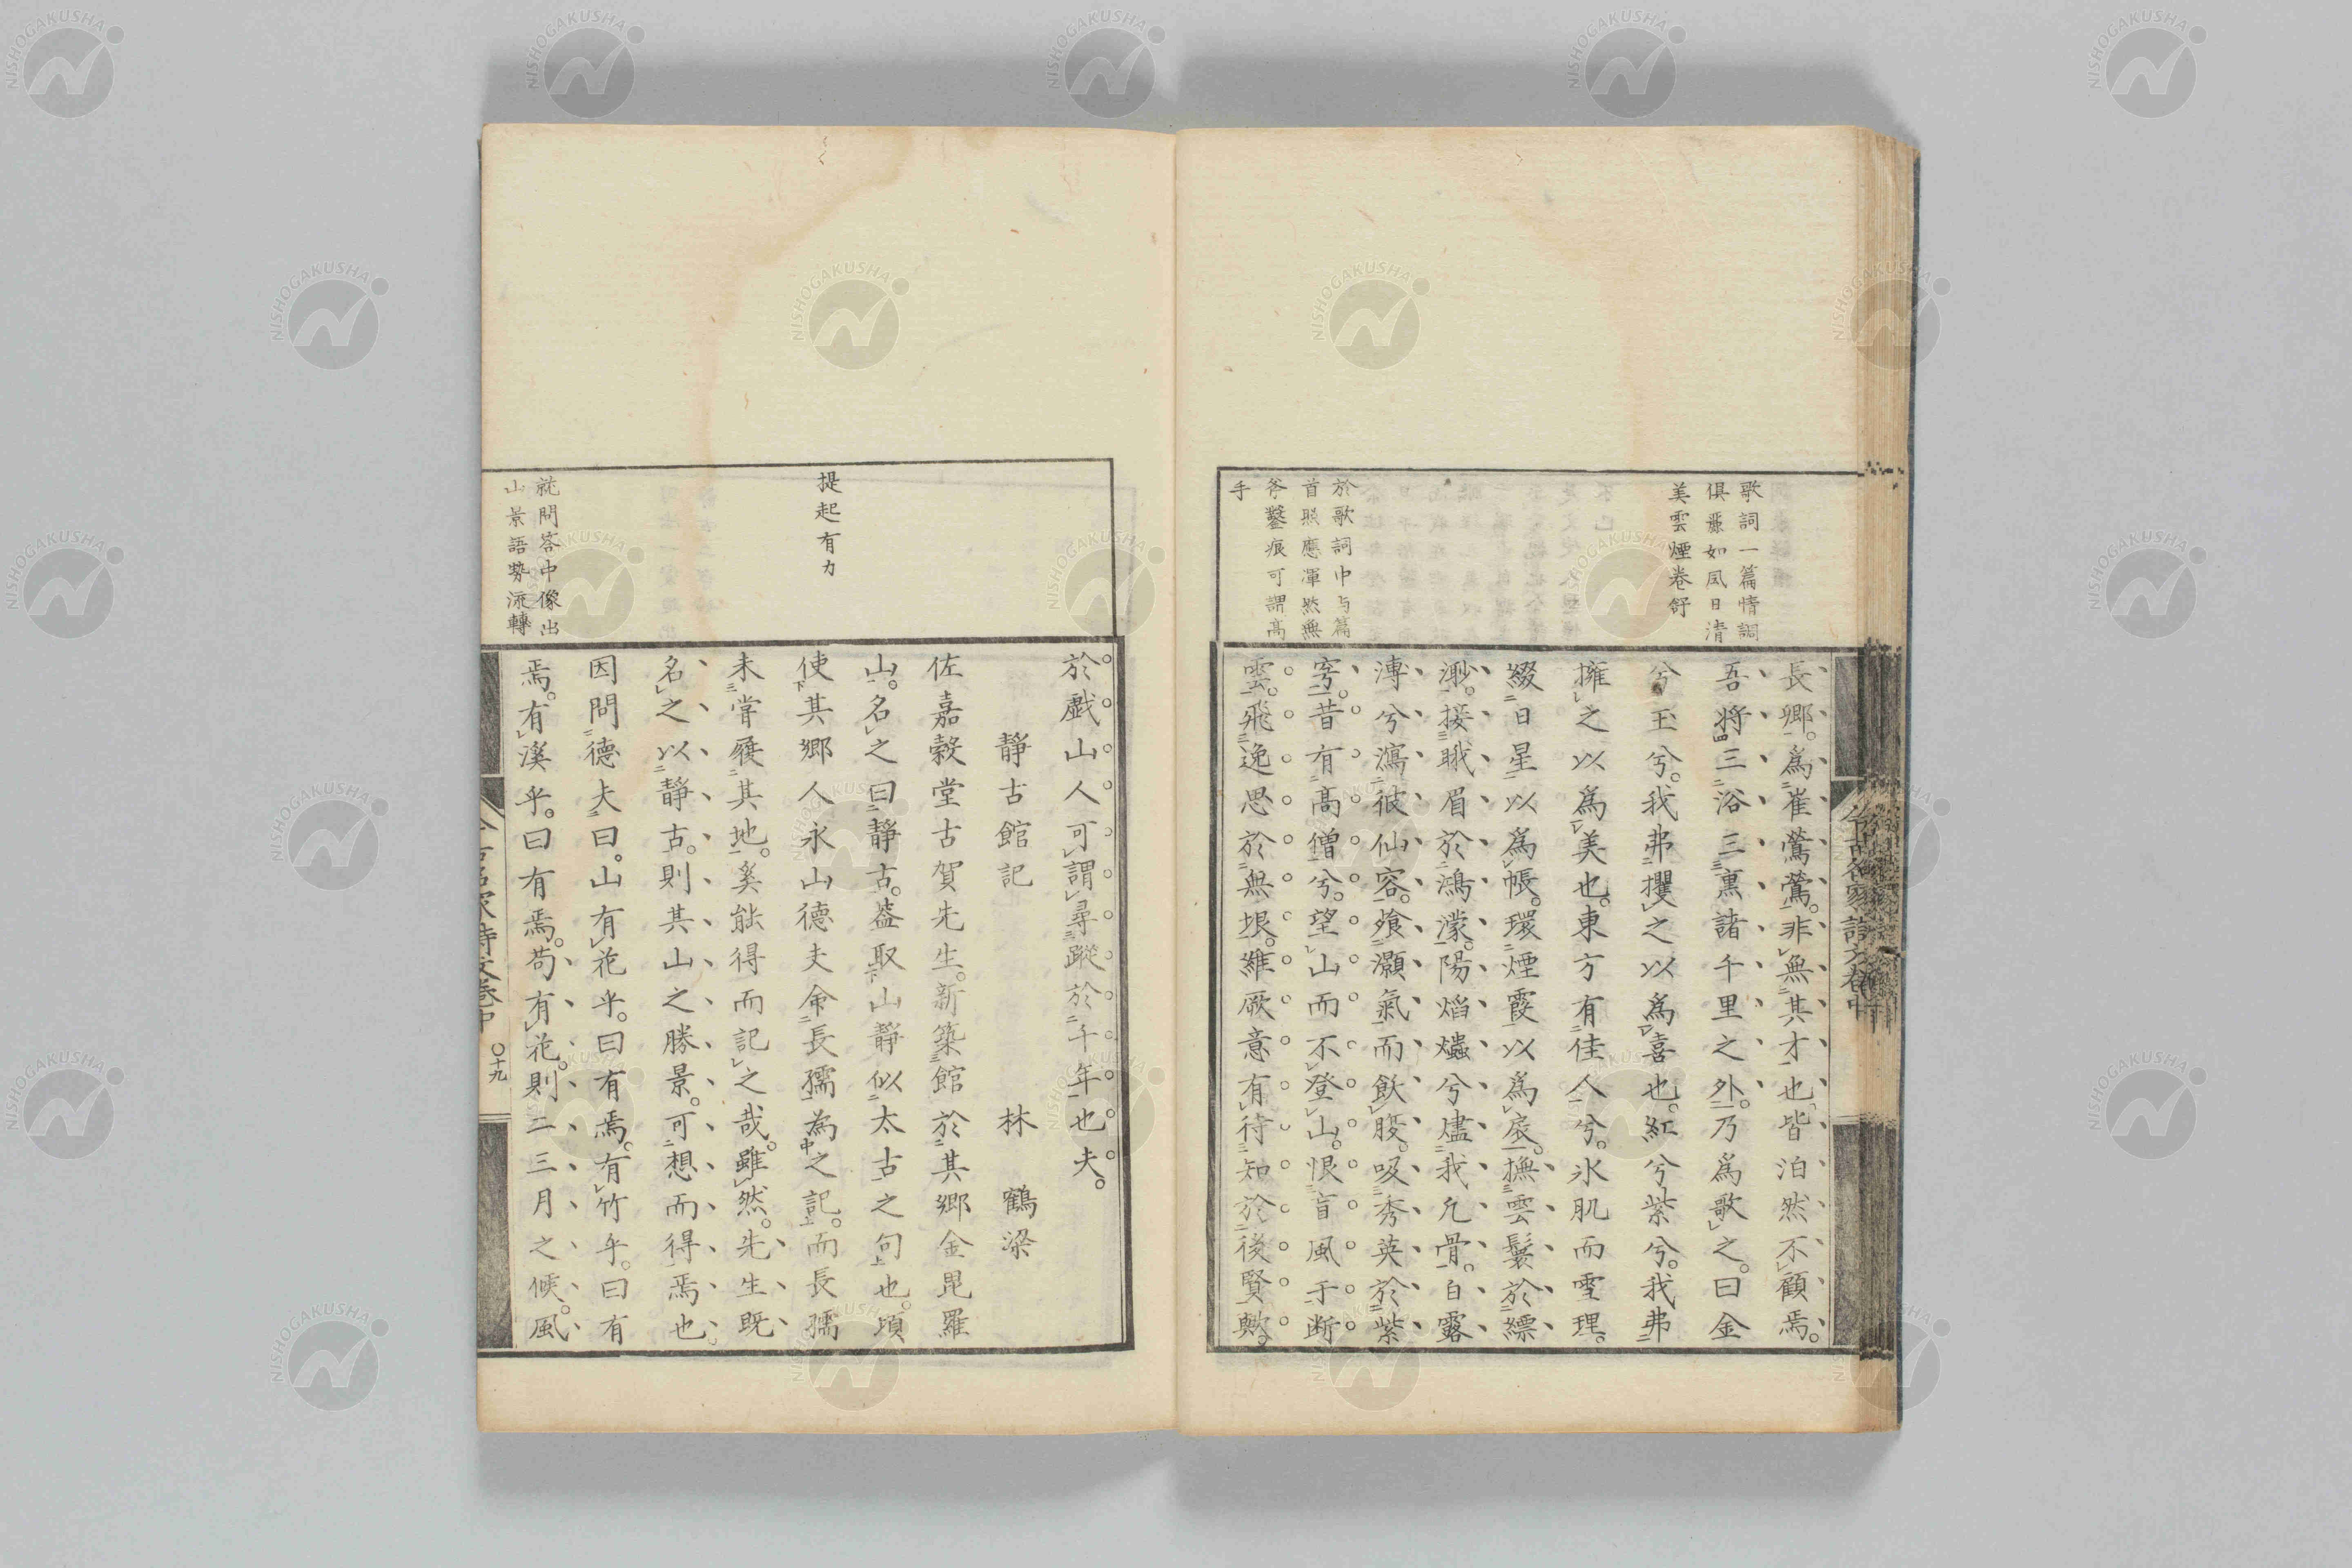 歌詞一篇情調
俱 如風日清
美雲煙卷舒
於歌詞中与篇
首照應渾然無
斧鑿痕可謂高
手
長卿。爲崔鶯鶯。非無其才也、皆泊然不顧焉。
吾將三浴三熏諸千里之外。乃爲歌之。曰金
兮玉兮。我弗攫之以爲喜也。紅兮紫兮。我弗
擁之以爲美也。東方有佳人兮。氷肌而雪理。
綴日星以爲帳。環煙霞以爲扆。撫雲鬟於縹
渺。接眂眉於鴻濛。陽焰爞兮燼我凡骨。白露
漙兮瀉彼仙容。飡灝氣而飲腹。吸秀英於紫
穹。昔有高僧兮。望山而不登山。恨盲風于断
雲。飛逸思於無垠。維厥意有待知於後賢歟。
於戯山人可謂尋蹤於千年也夫。
靜古館記 林鶴梁
佐嘉穀堂古賀先生。新築館於其鄉金毘羅
山。名之曰靜古。蓋取山靜似太古之句也。頃
使其鄉人永山德夫命長孺為之記。而長孺
未甞履其地。奚能得而記之哉。雖然。先生既
名之以靜古。則其山之勝景。可想而得焉也。
因問德夫曰。山有花乎。曰有焉。有竹乎。曰有
焉。有溪乎。曰有焉。苟有花。則二三月之候。風
提起有力
就問答中像出
山景語勢流轉
今古名家詩文卷中
〇十九
NISHOGAKUSHA